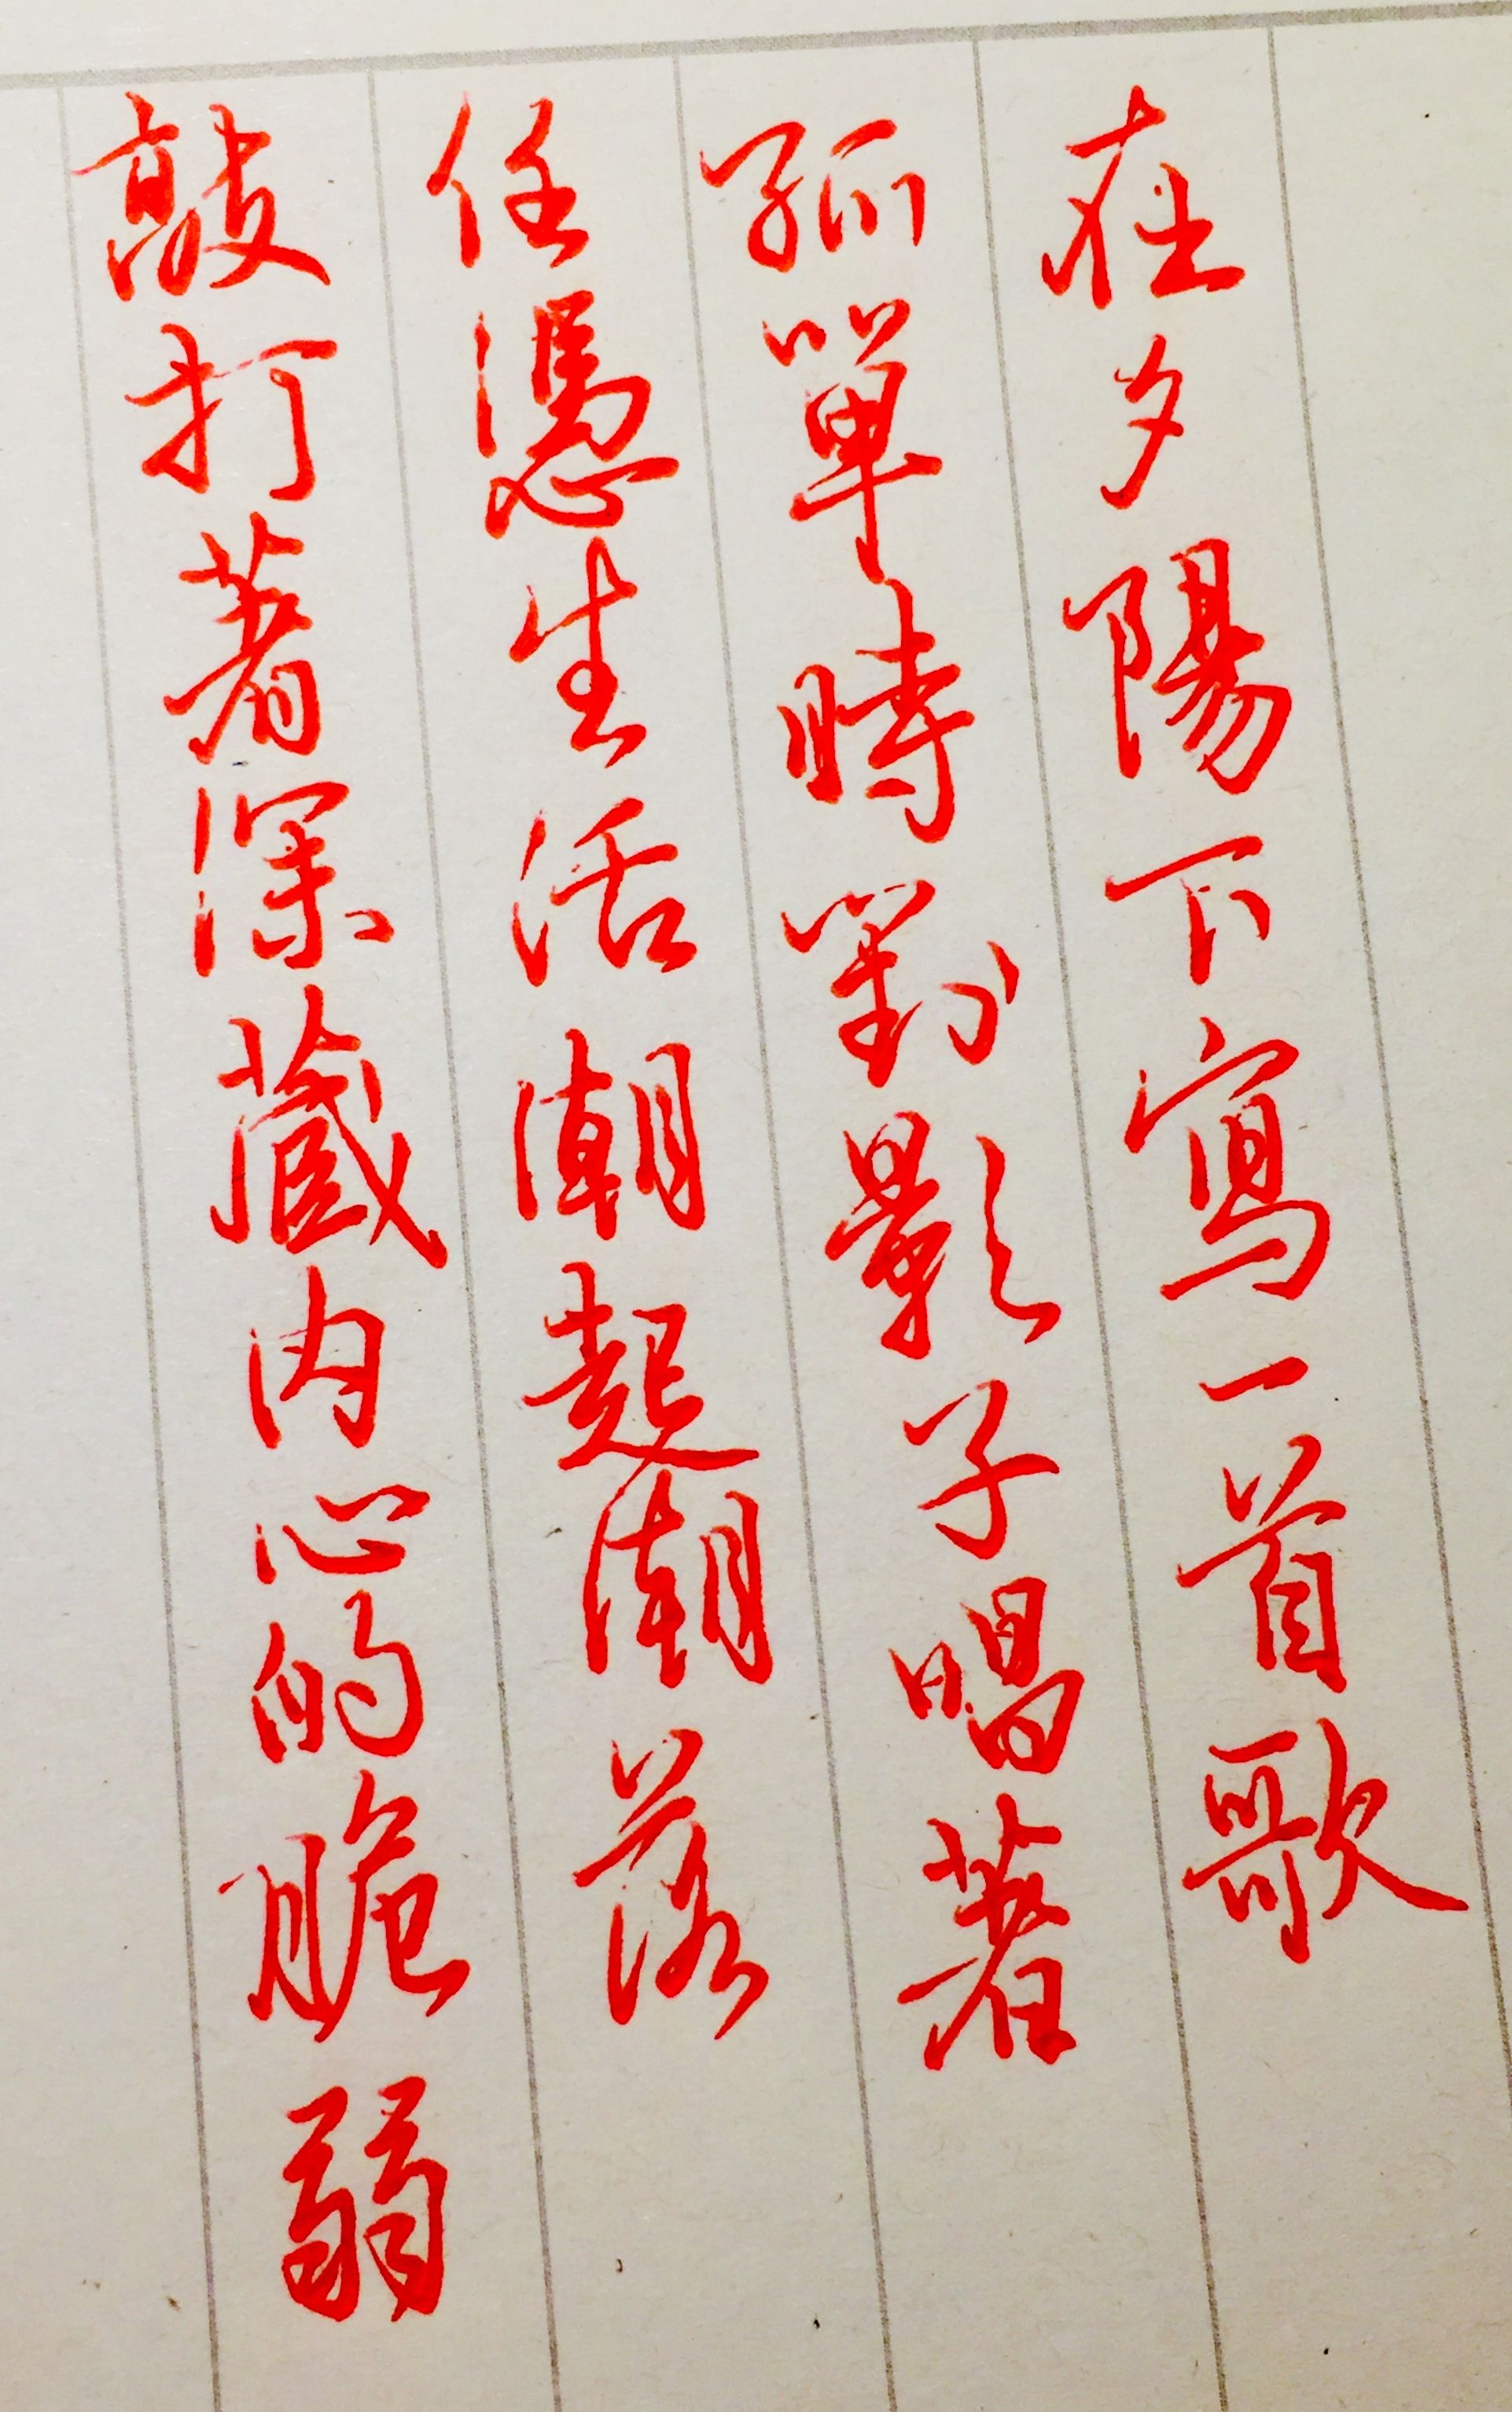 在夕陽下寫一首歌
孤單時對影子唱著
任憑生活潮起潮落
敲打著深藏內心的脆弱